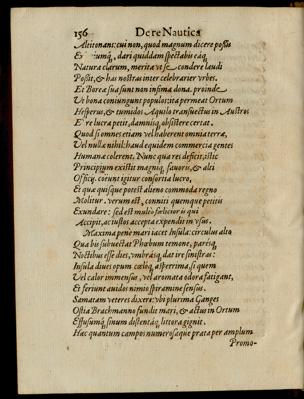 156 De re Nautica
Altitonans: cui non, quod magnum dicere possis
Et, dari quiddam spectabis eāq
Natura clarum, merita vt se condere laudi
Possit, & has nostras inter celebrarier vrbes.
Et Boreæ sua sunt non infima dona. proinde
Ut bona coniungunt populos: ita permeat Ortum
Hesperus, & tumidos Aquilo transuectus in Austros
Ere lucra petit, damnisq obsistere certat.
Quod si omnes etiam vel haberent omnia terræ,
Vel nulla nihil: haud equidem commercia gentes
Humana colerent. Nunc qua res deficit, istic
Principium exstitit magniq fauoris, & alti
Officij. coeunt igitur consortia lucro,
Et quæ quisque potest alieno commoda regno
Molitur. verum est, conniti quemque petitis
Exundare: sed est multo fœlicior is qui
Accipit, ac iustos accepta expendit in vsus.
Maxima pene mari iacet Insula: circulus alto
Qua bis subuectat Phœbum temone, pariq
Noctibus esse dies, vmbrasq dat ire sinistras:
Insula diues opum cœloq asperrima, si quem
Vel calor immensus, vel aromata odora fatigant,
Et feriunt auidos nimio spiramine sensus.
Samatram veteres dixere: vbi plurima Ganges
Ostia Brachmanno fundit mari, & actus in Ortum
Effusumq sinum distentaq littora gignit.
Hac quantum campos numerosaque prata per amplum
Promo-